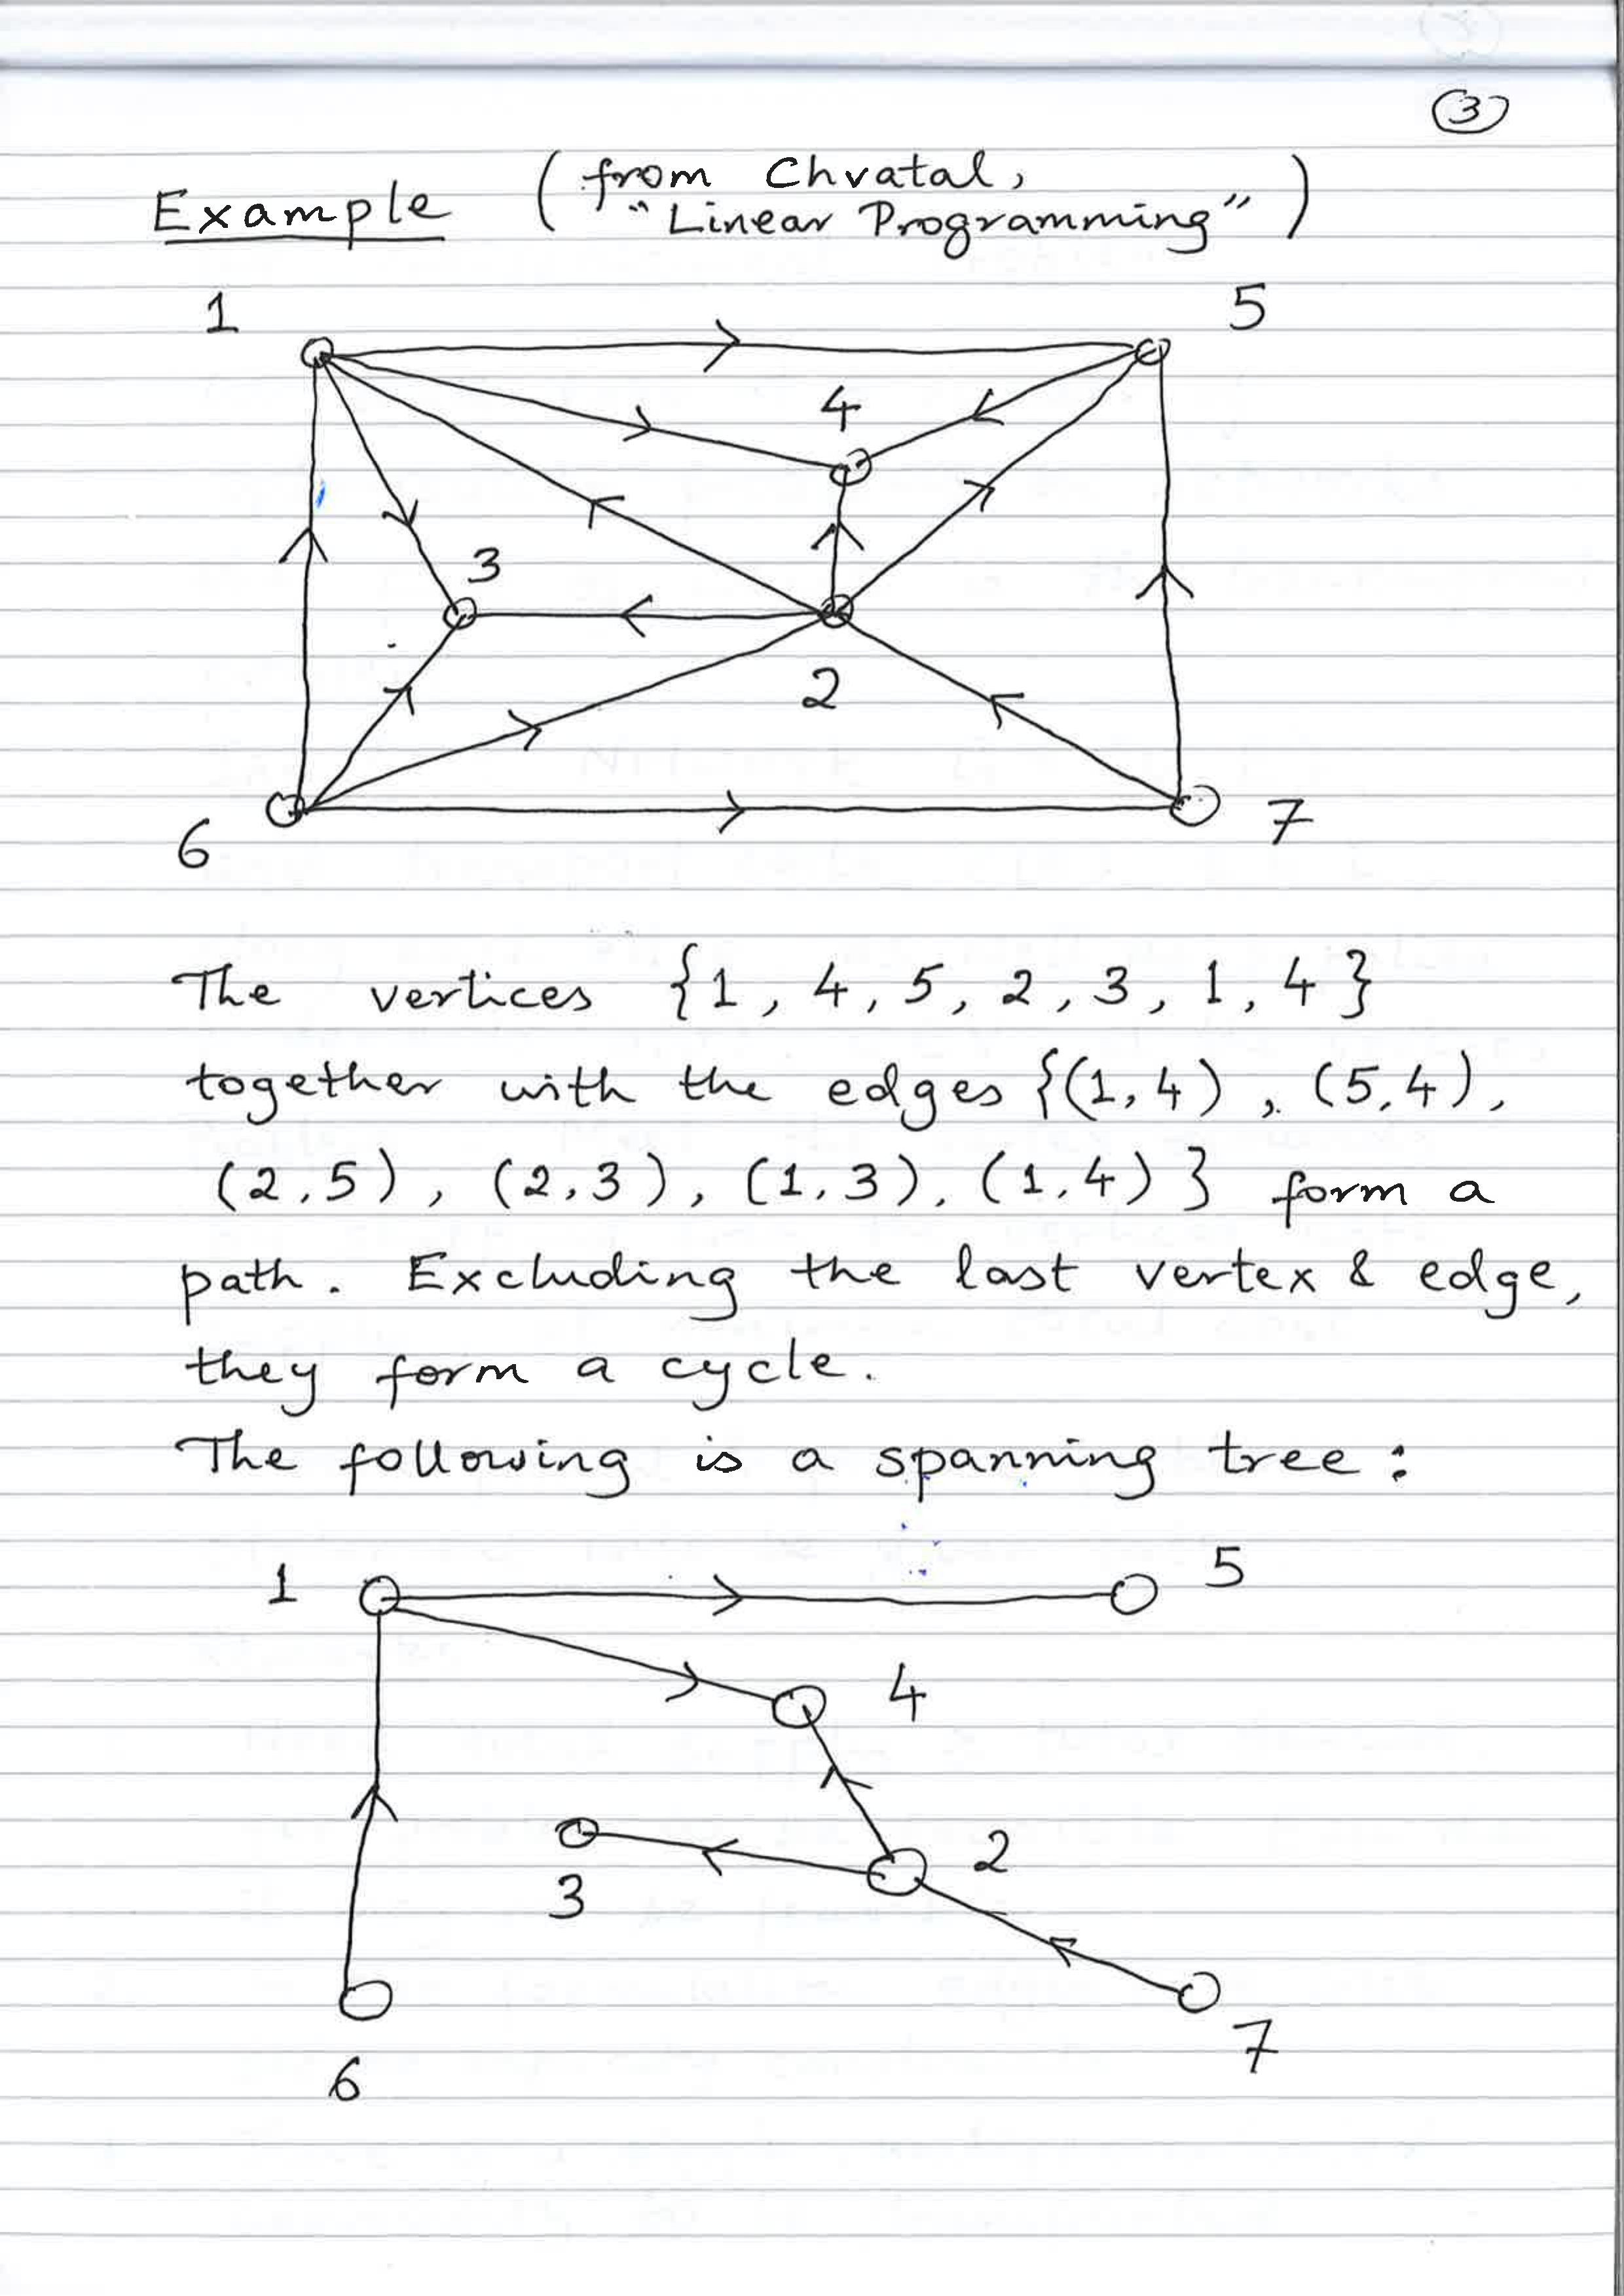 3
Example (from Chvatal,
"Linear Programming")
1
5
4
3
2
6
7
The vertices {1, 4, 5, 2, 3, 1, 4}
together with the edges {(1,4), (5,4),
(2,5), (2,3), (1,3), (1,4)} form a
path. Excluding the last vertex & edge,
they form a cycle.
The following is a spanning tree:
1
5
4
2
3
7
6